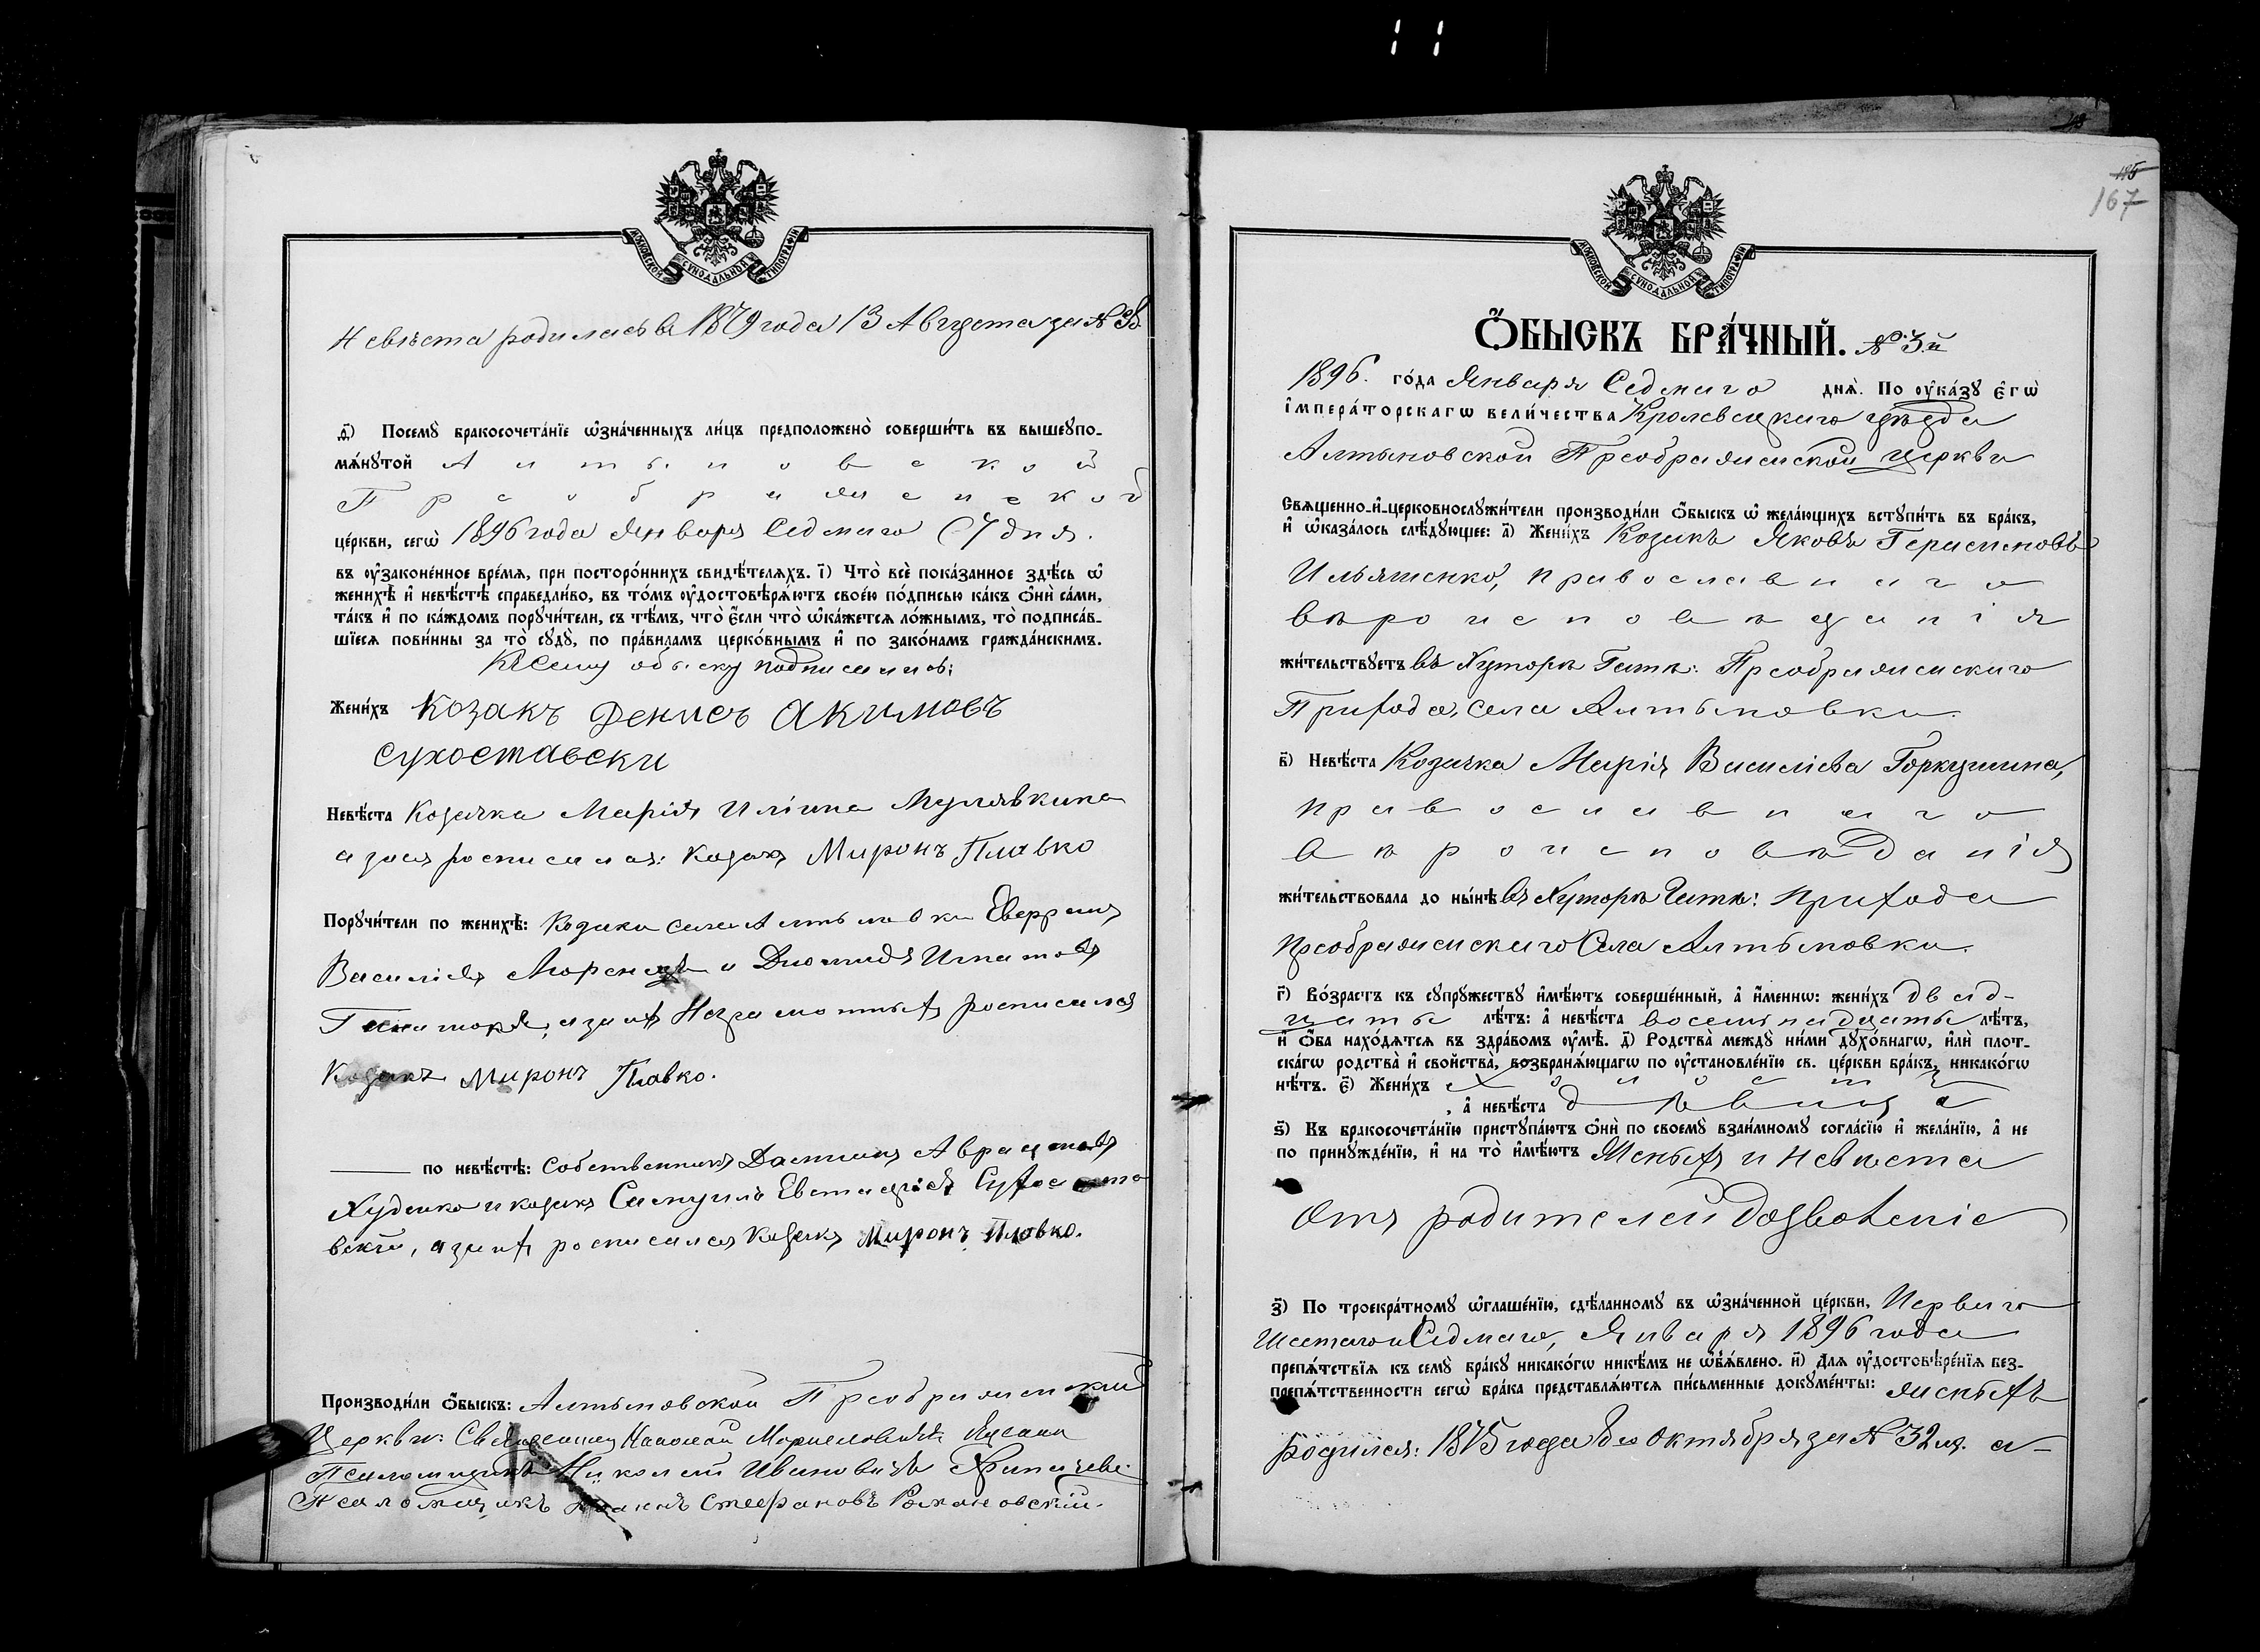 МОСКОВСКОЙ СѴНОДАЛЬНОЙ ТИПОГРАФІИ
Невѣста родилась въ 1879 года 13 Августа за №
д҃і) Посемꙋ̀ бракосочета́нїе ѡ҆зна́ченныхъ ли́цъ предположено̀ соверши́ть въ вышеꙋпо-
мѧ́нꙋтой Алтыновской
Преображенской
це́ркви, сегѡ̀ 1896 года Января Седмаго (7 дня.
въ ᲂу҆законе́нное вре́мѧ, при посторо́ннихъ свидѣ́телѧхъ. і҃) Что̀ всѐ пока́занное здѣ́сь ѡ҆
женихѣ̀ и҆ невѣ́стѣ справедли́во, въ то́мъ ᲂу҆достовѣрѧ́ютъ свое́ю по́дписью ка́къ ѻ҆нѝ са́ми,
та́къ и҆ по ка́ждомъ порꙋчи́тели, съ тѣ́мъ, что̀ є҆́сли что̀ ѡ҆ка́жетсѧ ло́жнымъ, то̀ подписа́в-
шїесѧ пови́нны за то̀ сꙋдꙋ̀, по пра́виламъ церко́внымъ и҆ по зако́намъ гражда́нскимъ.
Къ сему обыску подписались:
Жени́хъ Козакъ Денисъ Акимовъ
Сухоставски
Невѣ́ста Козачка Марія Иліина Мулявкина
а за ея росписался: Казакъ Миронъ Плавко
Порꙋчи́тели по женихѣ̀: Козаки села Алтыновки
Василіевъ и Диомидъ Игнатовъ
а за их неграмотных росписался
Козакъ Миронъ Плавко.
по невѣ́стѣ: Собственникъ
Худенко и козакъ Самуилъ Евстафіевъ Сухоста
вскій, а за их росписался Козакъ Миронъ Плавко.
Производи́ли ѻ҆́быскъ: Алтыновской Преображенской
Церкви: Священникъ
Псаломщикъ Николай Ивановичъ
Псаломщикъ Іоаннъ Стефановъ Романовскій.
167
МОСКОВСКОЙ СѴНОДАЛЬНОЙ ТИПОГРАФІИ
Ѻ҆́БЫСКЪ БРА́ЧНЫЙ. № 3.й
1896. го́да Января Седмаго днѧ̀. По ᲂу҆ка́зꙋ є҆гѡ̀
і҆мпера́торскагѡ вели́чества Кролевецкаго уѣзда
Алтыновской Преображенской церкви
Свѧщенно-и҆-церковнослꙋжи́тели производи́ли ѻ҆́быскъ ѡ҆ жела́ющихъ встꙋпи́ть въ бра́къ,
и҆ ѡ҆каза́лось слѣ́дꙋющее: а҃) Жени́хъ Козакъ Яковъ Герасимовъ
Ильяшенко, православнаго
вѣроисповѣданія
жи́тельствꙋетъ въ Хуторѣ Гатѣ: Преображенскаго
Прихода, села Алтыновки.
в҃) Невѣ́ста Козачка Марія Василіева Горкушина,
православнаго
вѣроисповѣданія
жи́тельствовала до ны́нѣ въ Хуторѣ Гатѣ: прихода
Преображенскаго Села Алтыновки.
г҃) Во́зрастъ къ сꙋпрꙋ́жествꙋ и҆мѣ́ютъ соверше́нный, а҆ и҆́менно: жени́хъ двад-
цать лѣ́тъ: а҆ невѣ́ста восемнадцать лѣ́тъ,
и҆ ѻ҆́ба нахо́дѧтсѧ въ здра́вомъ ᲂу҆мѣ̀. д҃) Родства̀ междꙋ̀ ни́ми дꙋхо́внагѡ, и҆лѝ плот-
ска́гѡ родства̀ и҆ свойства̀, возбранѧ́ющагѡ по ᲂу҆становле́нїю св. це́ркви бра́къ, никако́гѡ
нѣ́тъ. є҃) Жени́хъ холостъ
, а҆ невѣ́ста дѣвица
ѕ҃) Къ бракосочета́нїю пристꙋпа́ютъ ѻ҆нѝ по своемꙋ̀ взаи́мномꙋ согла́сїю и҆ жела́нїю, а҆ не
по принꙋжде́нїю, и҆ на то̀ и҆мѣ́ютъ Женихъ и невѣста
Отъ родителей дозволеніе
з҃) По троекра́тномꙋ ѡ҆глаше́нїю, сдѣ́ланномꙋ въ ѡ҆зна́ченной це́ркви, Перваго
Шестаго и Седмаго, Января 1896 года
препѧ́тствїѧ къ семꙋ̀ бра́кꙋ никако́гѡ никѣ́мъ не ѡ҆б̾ѧ́влено. и҃) Длѧ ᲂу҆достовѣре́нїѧ без-
препѧ́тственности сегѡ̀ бра́ка представлѧ́ютсѧ пи́сьменные докꙋме́нты: женихъ
родился: 1875 года 8го Октября за № 32м. а